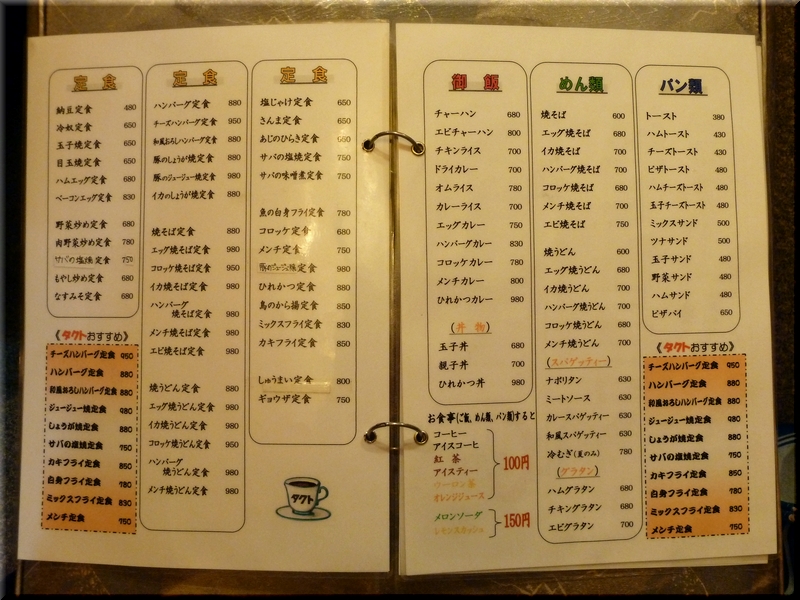 定食
納豆定食 480
冷奴定食 650
玉子焼定食 650
目玉焼定食 650
ハムエッグ定食 680
ベーコンエッグ定食 830
野菜炒め定食 680
肉野菜炒め定食 780
サバの塩焼定食 750
もやし炒め定食 680
なすみそ定食 680
《タクトおすすめ》
チーズハンバーグ定食 950
ハンバーグ定食 880
和風おろしハンバーグ定食 880
ジュージュー焼定食 980
しょうが焼定食 880
サバの塩焼定食 750
カキフライ定食 850
白身フライ定食 780
ミックスフライ定食 830
メンチ定食 750
定食
ハンバーグ定食 880
チーズハンバーグ定食 950
和風おろしハンバーグ定食 880
豚のしょうが焼定食 880
豚のジュージュー焼定食 980
イカのしょうが焼定食 880
焼そば定食 880
エッグ焼そば定食 980
コロッケ焼そば定食 950
イカ焼そば定食 980
ハンバーグ
焼そば定食 980
メンチ焼そば定食 980
エビ焼そば定食 980
焼うどん定食 880
エッグ焼うどん定食 980
イカ焼うどん定食 980
コロッケ焼うどん定食 950
ハンバーグ
焼うどん定食 980
メンチ焼うどん定食 980
定食
塩じゃけ定食 650
さんま定食 650
あじのひらき定食
サバの塩焼定食 750
サバの味噌煮定食 750
魚の白身フライ定食 780
コロッケ定食 680
メンチ定食 750
980
ひれかつ定食 880
鳥のから揚定食 850
ミックスフライ定食 830
カキフライ定食 850
しゅうまい定食 800
ギョウザ定食 750
タクト
御飯
チャーハン 680
エビチャーハン 800
チキンライス 700
ドライカレー 700
オムライス 780
カレーライス 700
エッグカレー 750
ハンバーグカレー 830
コロッケカレー 780
メンチカレー 800
ひれかつカレー 980
(丼物)
玉子丼 680
親子丼 700
ひれかつ丼 980
お食事(ご飯、めん類、パン類)すると
コーヒー
アイスコーヒ
紅茶
アイスティー
ウーロン茶
オレンジジュース
100円
メロンソーダ
レモンスカッシュ
150円
めん類
焼そば 600
エッグ焼そば 680
イカ焼そば 700
ハンバーグ焼そば 700
コロッケ焼そば 680
メンチ焼そば 700
エビ焼そば 750
焼うどん 600
エッグ焼うどん 680
イカ焼うどん 700
ハンバーグ焼うどん 700
コロッケ焼うどん 680
メンチ焼うどん 700
(スパゲッティー)
ナポリタン 630
ミートソース 630
カレースパゲッティー 630
和風スパゲッティー 630
冷むぎ(夏のみ) 780
(グラタン)
ハムグラタン 680
チキングラタン 680
エビグラタン 700
パン類
トースト 380
ハムトースト 430
チーズトースト 430
ピザトースト 480
ハムチーズトースト 480
玉子チーズトースト 480
ミックスサンド 500
ツナサンド 500
玉子サンド 480
野菜サンド 480
ハムサンド 480
ピザパイ 650
《タクトおすすめ》
チーズハンバーグ定食 950
ハンバーグ定食 880
和風おろしハンバーグ定食 880
ジュージュー焼定食 980
しょうが焼定食 880
サバの塩焼定食 750
カキフライ定食 850
白身フライ定食 780
ミックスフライ定食 830
メンチ定食 750